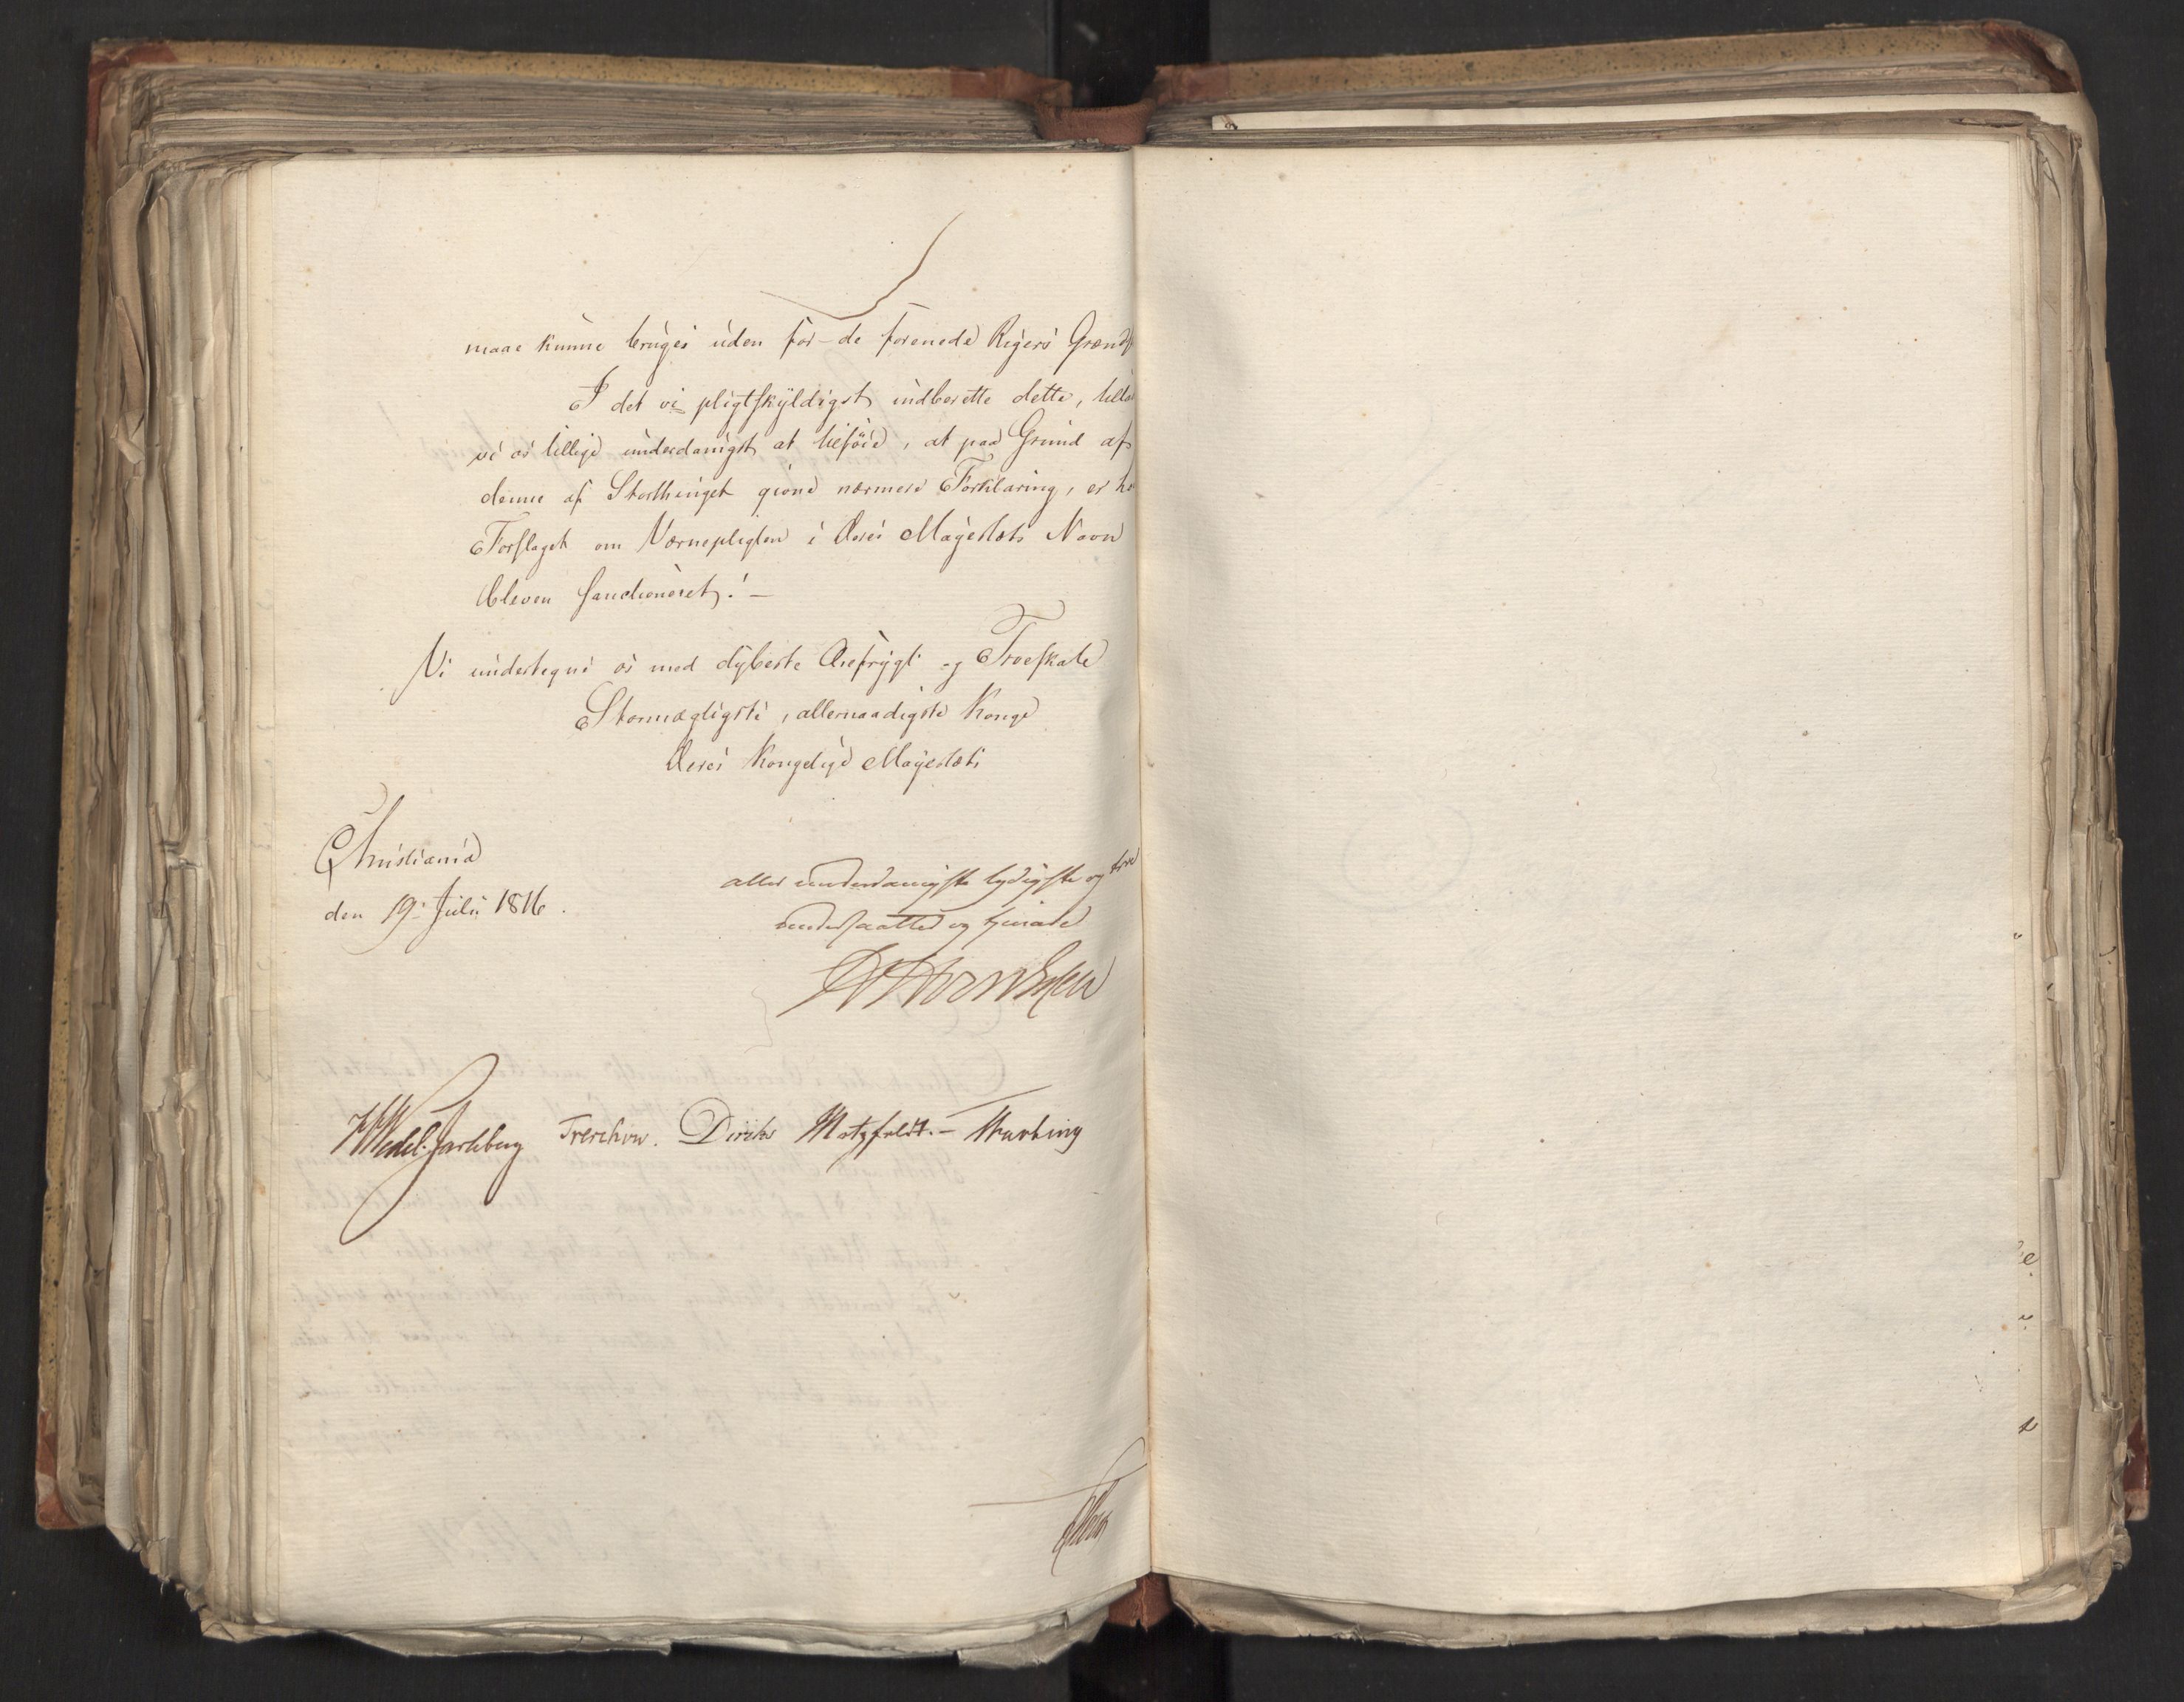 maae kunne bruges uden for de forenede Rigers Grænds
I det vi pligtskyldigst indberette dette, tillad
vi os tillige underdanigst at tilföie, at paa Grund af
denne af Storthinget givne nærmere Forklaring, er h
Forslaget om Værnepligten i Deres Majestæts Navn
bleven sanctioneret. —
Vi undertegne os med dybeste Ærefrygt og Troeskab
Stormægtigste, allernaadigste Konge
Deres Kongelige Majestæts
Christiania
den 19de Julii 1816.
aller underdanigste lydigste og troe
undersaatter og tjenere
HWedel-Jarlsberg Treschow. Diriks Motzfeldt. — Krebting